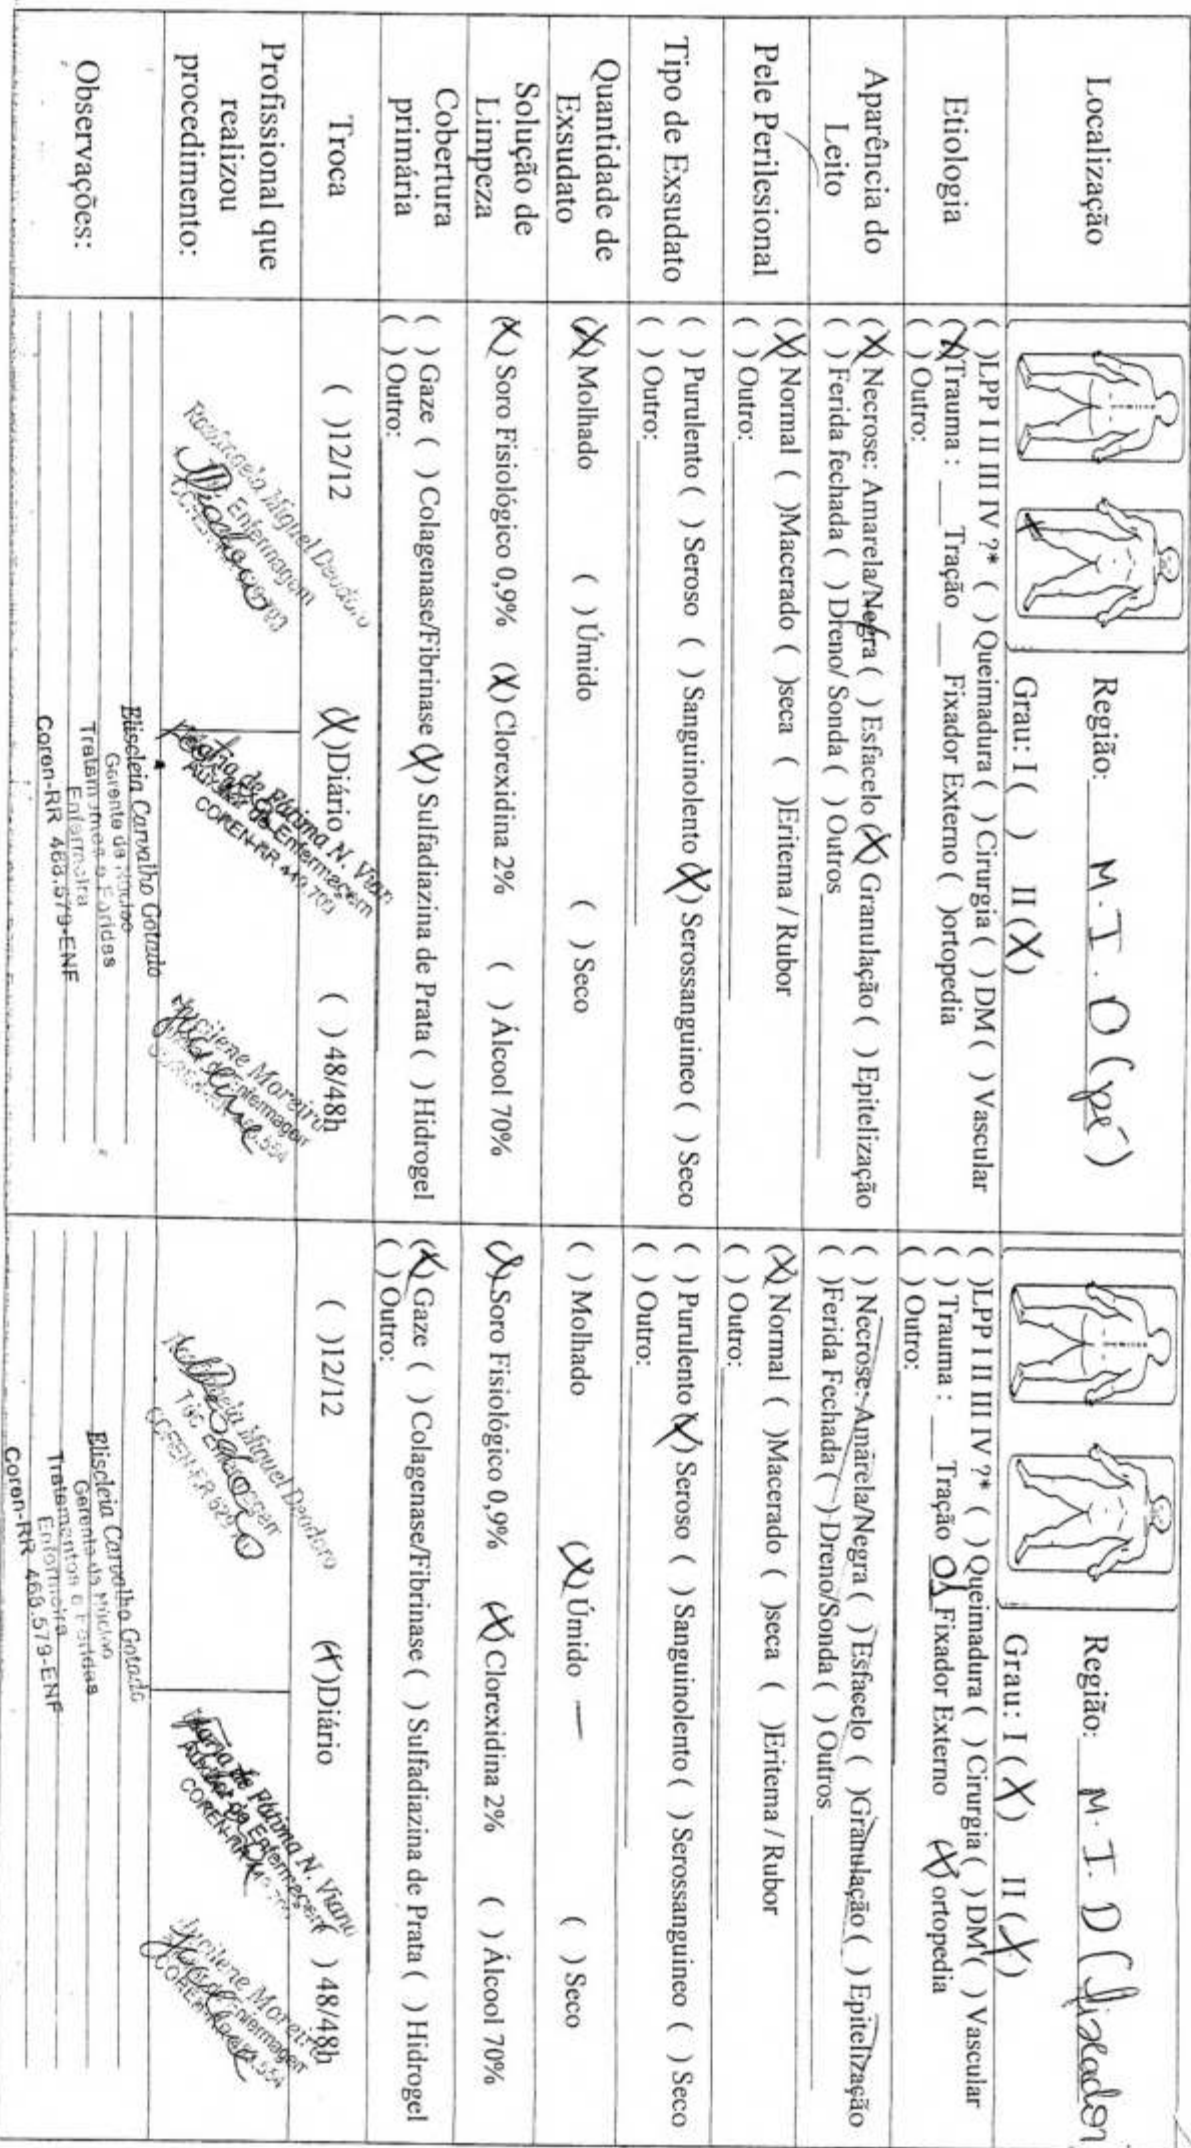 Localização
Região: M. I. D (pé)
Grau: I ( ) II (X)
Região: M. I. D (fixador)
Grau: I (X) II (X)
Etiologia
( )LPP I II III IV ?* ( ) Queimadura ( ) Cirurgia ( ) DM ( ) Vascular
(X)Trauma : ___ Tração ___ Fixador Externo ( )ortopedia
( ) Outro:
( )LPP I II III IV ?* ( ) Queimadura ( ) Cirurgia ( ) DM ( ) Vascular
( ) Trauma : __Tração 01 Fixador Externo (X) ortopedia
( ) Outro:
Aparência do
Leito
(X) Necrose: Amarela/Negra ( ) Esfacelo (X) Granulação ( ) Epitelização
( ) Ferida fechada ( ) Dreno/ Sonda ( ) Outros
( ) Necrose: Amarela/Negra ( ) Esfacelo ( )Granulação ( ) Epitelização
( )Ferida Fechada ( ) Dreno/Sonda ( ) Outros
Pele Perilesional
(X) Normal ( )Macerado ( )seca ( )Eritema / Rubor
( ) Outro:
(X) Normal ( )Macerado ( )seca ( )Eritema / Rubor
( ) Outro:
Tipo de Exsudato
( ) Purulento ( ) Seroso ( ) Sanguinolento (X) Serossanguineo ( ) Seco
( ) Outro:
( ) Purulento (X) Seroso ( ) Sanguinolento ( ) Serossanguineo ( ) Seco
( ) Outro:
Quantidade de
Exsudato
(X) Molhado ( ) Úmido ( ) Seco
( ) Molhado (X) Úmido — ( ) Seco
Solução de
Limpeza
(X) Soro Fisiológico 0,9% (X) Clorexidina 2% ( ) Álcool 70%
(X) Soro Fisiológico 0,9% (X) Clorexidina 2% ( ) Álcool 70%
Cobertura
primária
( ) Gaze ( ) Colagenase/Fibrinase (X) Sulfadiazina de Prata ( ) Hidrogel
( ) Outro:
(X) Gaze ( ) Colagenase/Fibrinase ( ) Sulfadiazina de Prata ( ) Hidrogel
( ) Outro:
Troca
( )12/12 (X)Diário ( ) 48/48h
( )12/12 (X)Diário ( ) 48/48h
Profissional que
realizou
procedimento:
Miguel Deodoro
Enfermagem
de Fátima N. Viana
Auxiliar de Enfermagem
COREN-RR
Jucilene Moreira
Miguel Deodoro
Maria de Fátima N. Viana
Auxiliar de Enfermagem
COREN-RR
Jucilene Moreira
Observações:
Eliscleia Carvalho Gotado
Gerente do Núcleo
Tratamentos e Feridas
Enfermeira
Coren-RR 468.579-ENF
Eliscleia Carvalho Gotado
Gerente do Núcleo
Tratamentos e Feridas
Enfermeira
Coren-RR 468.579-ENF